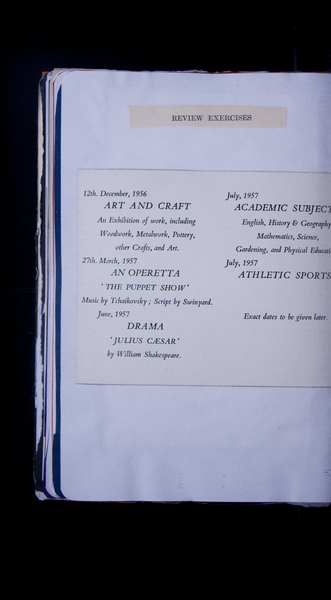 REVIEW EXERCISES
12th. December, 1956
ART AND CRAFT
An Exhibition of work, including
Woodwork, Metalwork, Pottery,
other Crafts, and Art.
27th. March, 1957
AN OPERETTA
'THE PUPPET SHOW'
Music by Tchaikovsky; Script by Swinyard.
June, 1957
DRAMA
'JULIUS CÆSAR'
by William Shakespeare.
July, 1957
ACADEMIC SUBJECT
English, History & Geography
Mathematics, Science,
Gardening, and Physical Educati
July, 1957
ATHLETIC SPORTS
Exact dates to be given later.